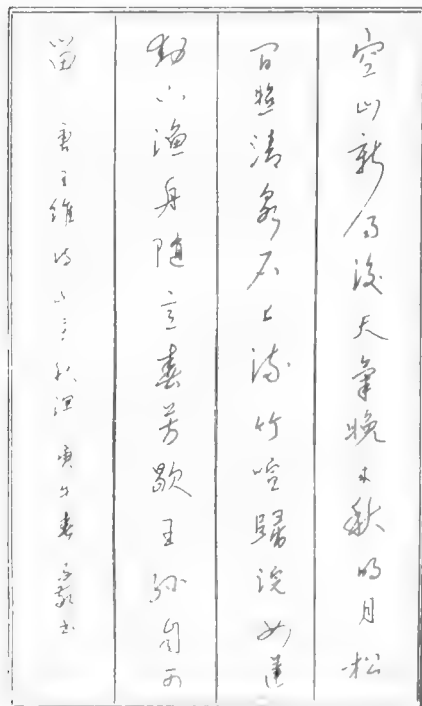 空山新雨後天氣晚来秋明月松
間照清泉石上流竹喧歸浣女蓮
動下漁舟隨意春芳歇王孫自可
留 唐王維詩山居秋暝 庚子春書